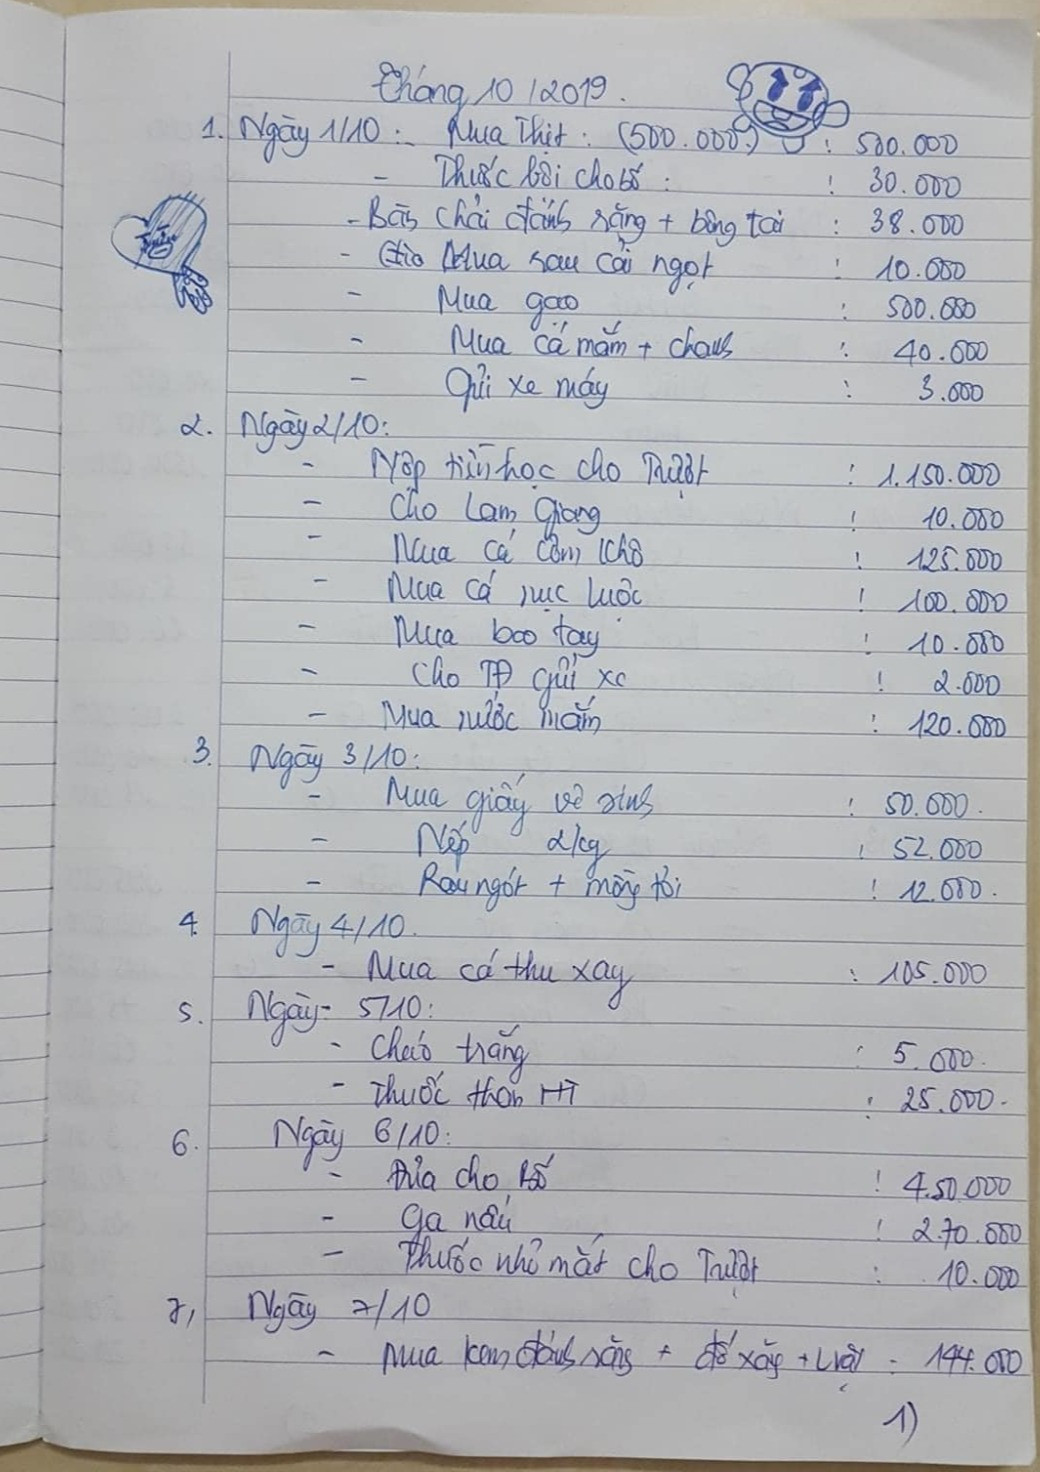 Tháng 10/2019.
1. Ngày 1/10: - Mua Thịt: (500.000đ) : 500.000
- Thuốc bôi cho bố : 30.000
- Bàn chải đánh răng + bông tai : 38.000
- Mua rau cải ngọt : 10.000
- Mua gạo : 500.000
- Mua cá mắm + chanh : 40.000
- Gửi xe máy : 3.000
2. Ngày 2/10:
- Nộp tiền học cho Trượt : 1.150.000
- Cho Lam Giang : 10.000
- Mua cá cơm khô : 125.000
- Mua cá nục luộc : 100.000
- Mua bao tay : 10.000
- Cho TĐ gửi xe : 2.000
- Mua nước mắm : 120.000
3. Ngày 3/10:
- Mua giấy vệ sinh : 50.000.
- Nếp 2kg : 52.000
- Rau ngót + mồng tơi : 12.000.
4. Ngày 4/10.
- Mua cá thu xay : 105.000
5. Ngày - 5/10:
- Cháo trắng : 5.000.
- Thuốc thơm HT : 25.000.
6. Ngày 6/10:
- Đưa cho Bố : 450.000
- Ga nấu : 270.000
- Thuốc nhỏ mắt cho Trượt : 10.000
7, Ngày 7/10
- Mua kem đánh răng + đồ xăng + : 144.000
1)